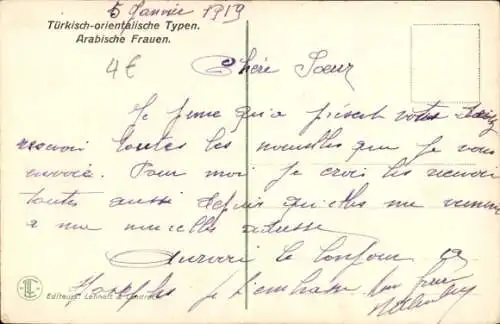 5 Janvier 1919
Türkisch-orientalische Typen.
Arabische Frauen.
4€
Chère Sœur
Je pense qu'a présent vous devez
recevoir toutes les nouvelles que je vous
envoie. Pour moi je crois les recevoir
toutes aussi depuis qu'elles me viennent
a ma nouvelle adresse
Aurevoir le bonjour a
Josephe je t'embrasse ton frère
Editeurs: Lehnert & Landrock